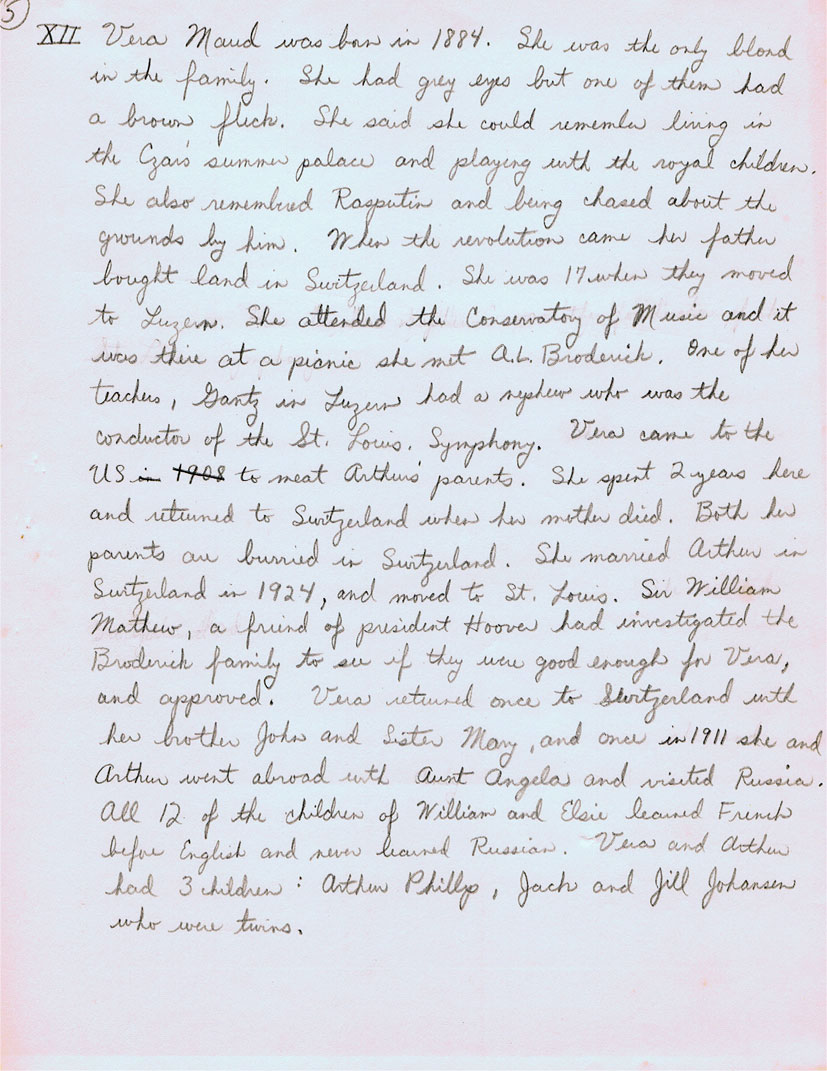 5
XII Vera Maud was born in 1884. She was the only blond
in the family. She had grey eyes but one of them had
a brown fleck. She said she could remember living in
the Czar's summer palace and playing with the royal children.
She also remembered Rasputin and being chased about the
grounds by him. When the revolution came her father
bought land in Switzerland. She was 17 when they moved
to Luzern. She attended the Conservatory of Music and it
was there at a picnic she met A.L. Broderick. One of her
teachers, Gantz in Luzern had a nephew who was the
conductor of the St. Louis. Symphony. Vera came to the
US in 1908 to meat Arthurs' parents. She spent 2 years here
and returned to Switzerland when her mother died. Both her
parents are burried in Switzerland. She married Arthur in
Switzerland in 1924, and moved to St. Louis. Sir William
Mathew, a friend of president Hoover had investigated the
Broderick family to see if they were good enough for Vera,
and approved. Vera returned once to Switzerland with
her brother John and Sister Mary, and once in 1911 she and
Arthur went abroad with Aunt Angela and visited Russia.
All 12 of the children of William and Elsie learned French
before English and never learned Russian. Vera and Arthur
had 3 children: Arthur Phillip, Jack and Jill Johansen
who were twins.